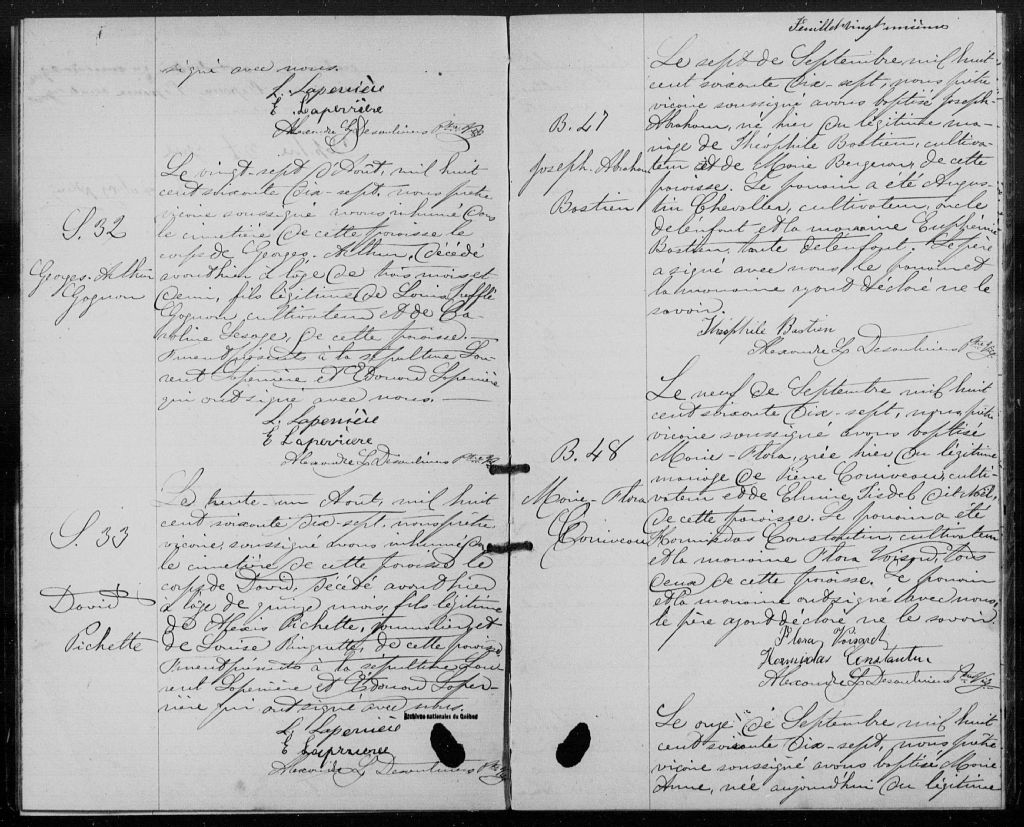 signé avec nous.
L. Laperrière
E Laperrière
Alexandre L. Desaulniers Ptre Vic
S. 32
Georges-Arthur
Gagnon
Le vingt-sept d'Aout, mil huit
cent soixante dix-sept, nous prêtre
vicaire soussigné avons inhumé dans
le cimetière de cette paroisse le
corps de Georges-Arthur, décédé
avant hier à l'age de trois mois et
demi, fils légitime de Louis Trefflé
Gagnon, cultivateur et de Ca-
roline Lesage, de cette paroisse.—
Furent présents à la sépulture Lau-
rent Laperrière et Edouard Laperrière
qui ont signé avec nous.—
L. Laperrière
E Laperrière
Alexandre L. Desaulniers Ptre Vic
S. 33
David
Pichette
Le trente-un Aout, mil huit
cent soixante dix-sept, nous prêtre
vicaire soussigné avons inhumé dans
le cimetière de cette paroisse le
corps de David, décédé avant hier
à l'age de quinze mois, fils légitime
de Alexis Pichette, journalier et
de Louise Ringuette, de cette paroisse
Furent présents à la sépulture Lau-
rent Laperrière et Edouard Laper-
rière qui ont signé avec nous.
Archives nationales du Québec
L. Laperrière
E Laperrière
Alexandre L. Desaulniers Ptre Vic
Feuillet vingt-unième
B. 47
Joseph-Abraham
Bastien
Le sept de Septembre, mil huit
cent soixante dix-sept, nous prêtre
vicaire soussigné avons baptisé Joseph-
Abraham, né hier du légitime ma-
riage de Théophile Bastien, cultiva-
teur et de Marie Bergeron, de cette
paroisse. Le parrain a été Augus-
tin Chevalier, cultivateur, oncle
de l'enfant et la marraine Euphémie
Bastien, tante de l'enfant. Le père
a signé avec nous le parrain et
la marraine ayant déclaré ne le
savoir.
Théophile Bastien
Alexandre L. Desaulniers Ptre Vic
B. 48
Marie-Flora
Corriveau
Le neuf de Septembre mil huit
cent soixante dix-sept, nous prêtre
vicaire soussigné avons baptisé
Marie-Flora, née hier du légitime
mariage de Pierre Corriveau, culti-
vateur et de dit Noël,
de cette paroisse. Le parrain a été
Hormisdas Constantin, cultivateur
et la marraine Flora Voisard, tous
deux de cette paroisse. Le parrain
et la marraine ont signé avec nous,
le père ayant déclaré ne le savoir.
Flora Voisard
Hormisdas Constantin
Alexandre L. Desaulniers Ptre Vic
Le onze de Septembre mil huit
cent soixante dix-sept, nous prêtre
vicaire soussigné avons baptisé Marie
Anne, née aujourd'hui du légitime